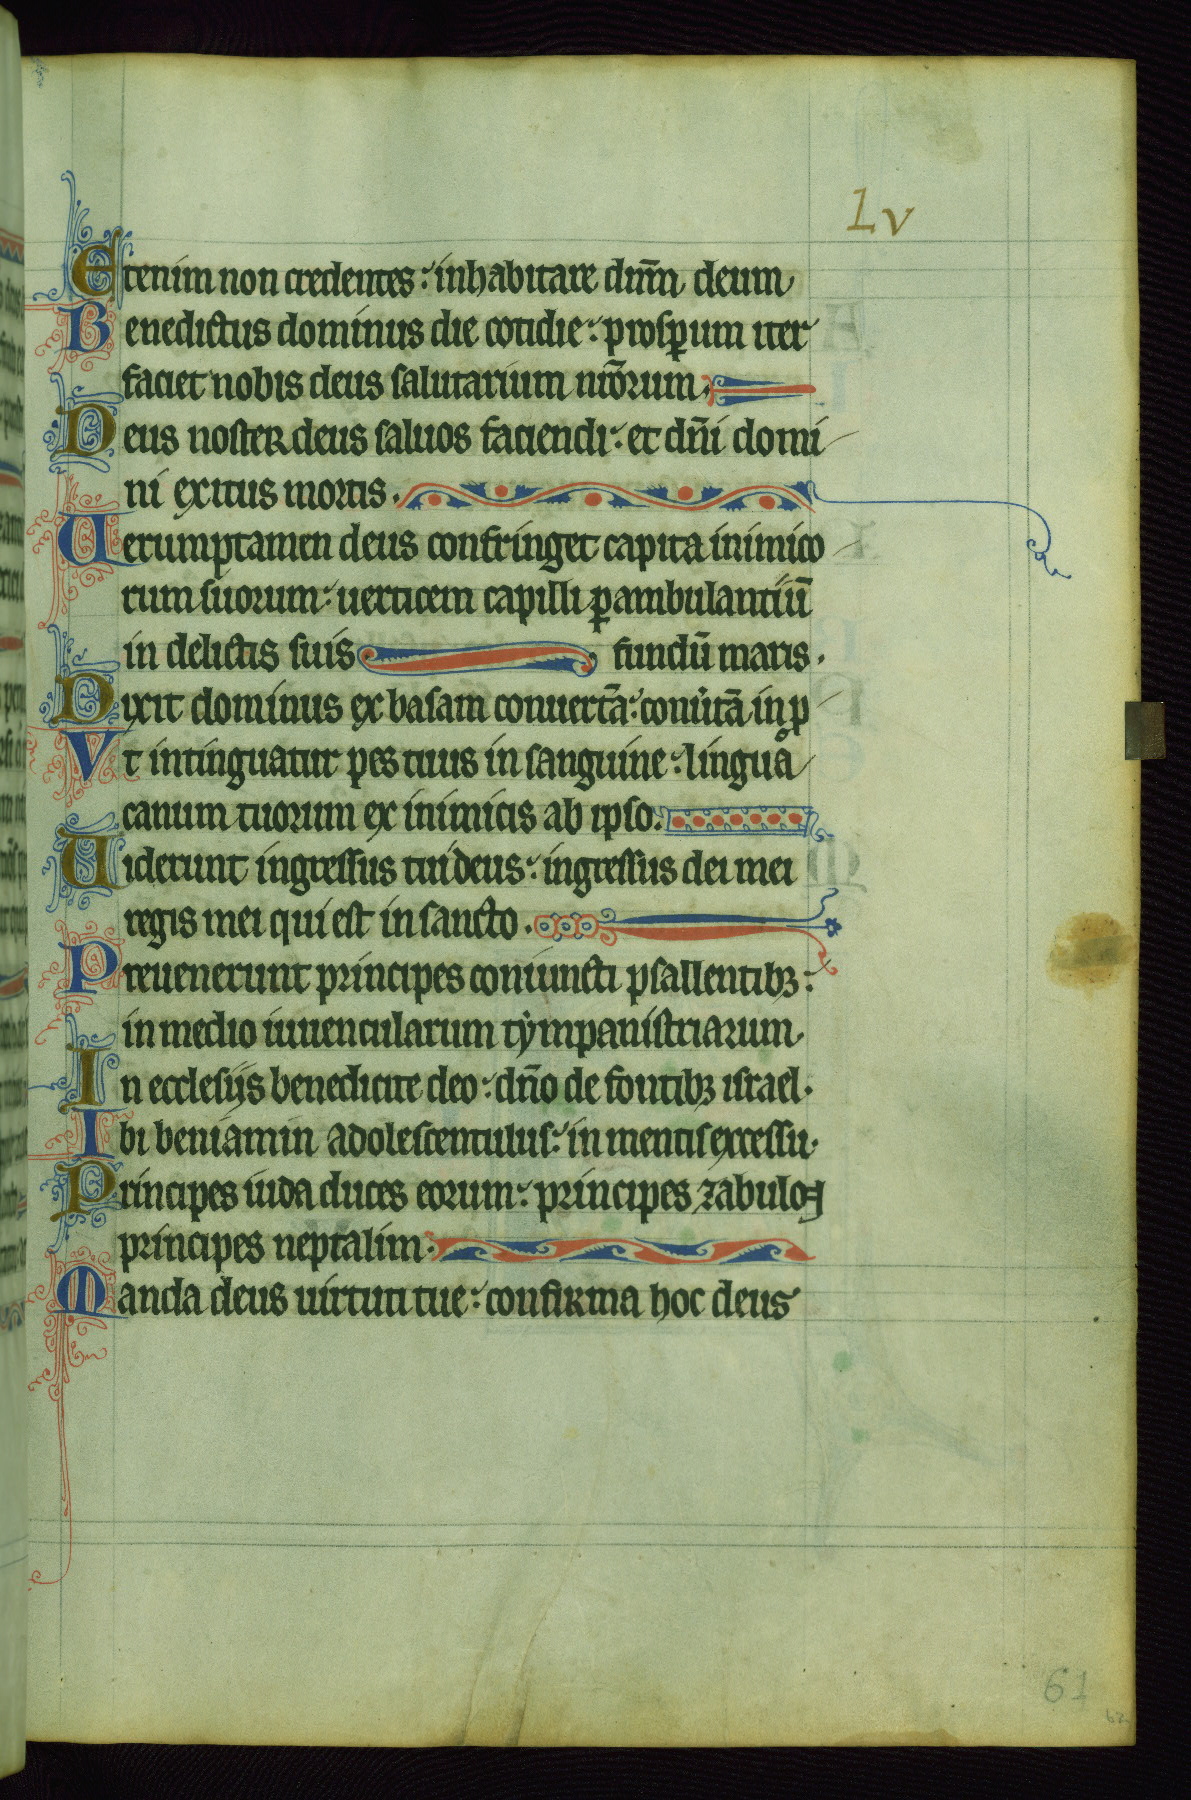 Lv
Etenim non credentes: inhabitare dn̄m deum
Benedictus dominus die cotidie: prosꝑum iter
faciet nobis deus salutarium nr̄orum.
Deus noster deus saluos faciendi: et dn̄i domi
ni exitus mortis.
Uerumptamen deus confringet capita inimico
rum suorum: uerticem capilli ꝑambulantiū
in delictis suis fundū maris.
Dixit dominus ex basam conuertā: conũtā in ꝓ
Vt intinguatur pes tuus in sanguine: lingua
canum tuorum ex inimicis ab ipso.
Uiderunt ingressus tui deus: ingressus dei mei
regis mei qui est in sancto.
Preuenerunt principes coniuncti psallentibꝫ:
in medio iuuencularum tẏmpanistriarum.
In ecclesijs benedicite deo: dn̄o de fontibꝫ israel.
Ibi beniamin adolescentulus: in mentis excessu.
Principes iuda duces eorum: principes zabulon
principes neptalim.
Manda deus uirtuti tue: confirma hoc deus
61